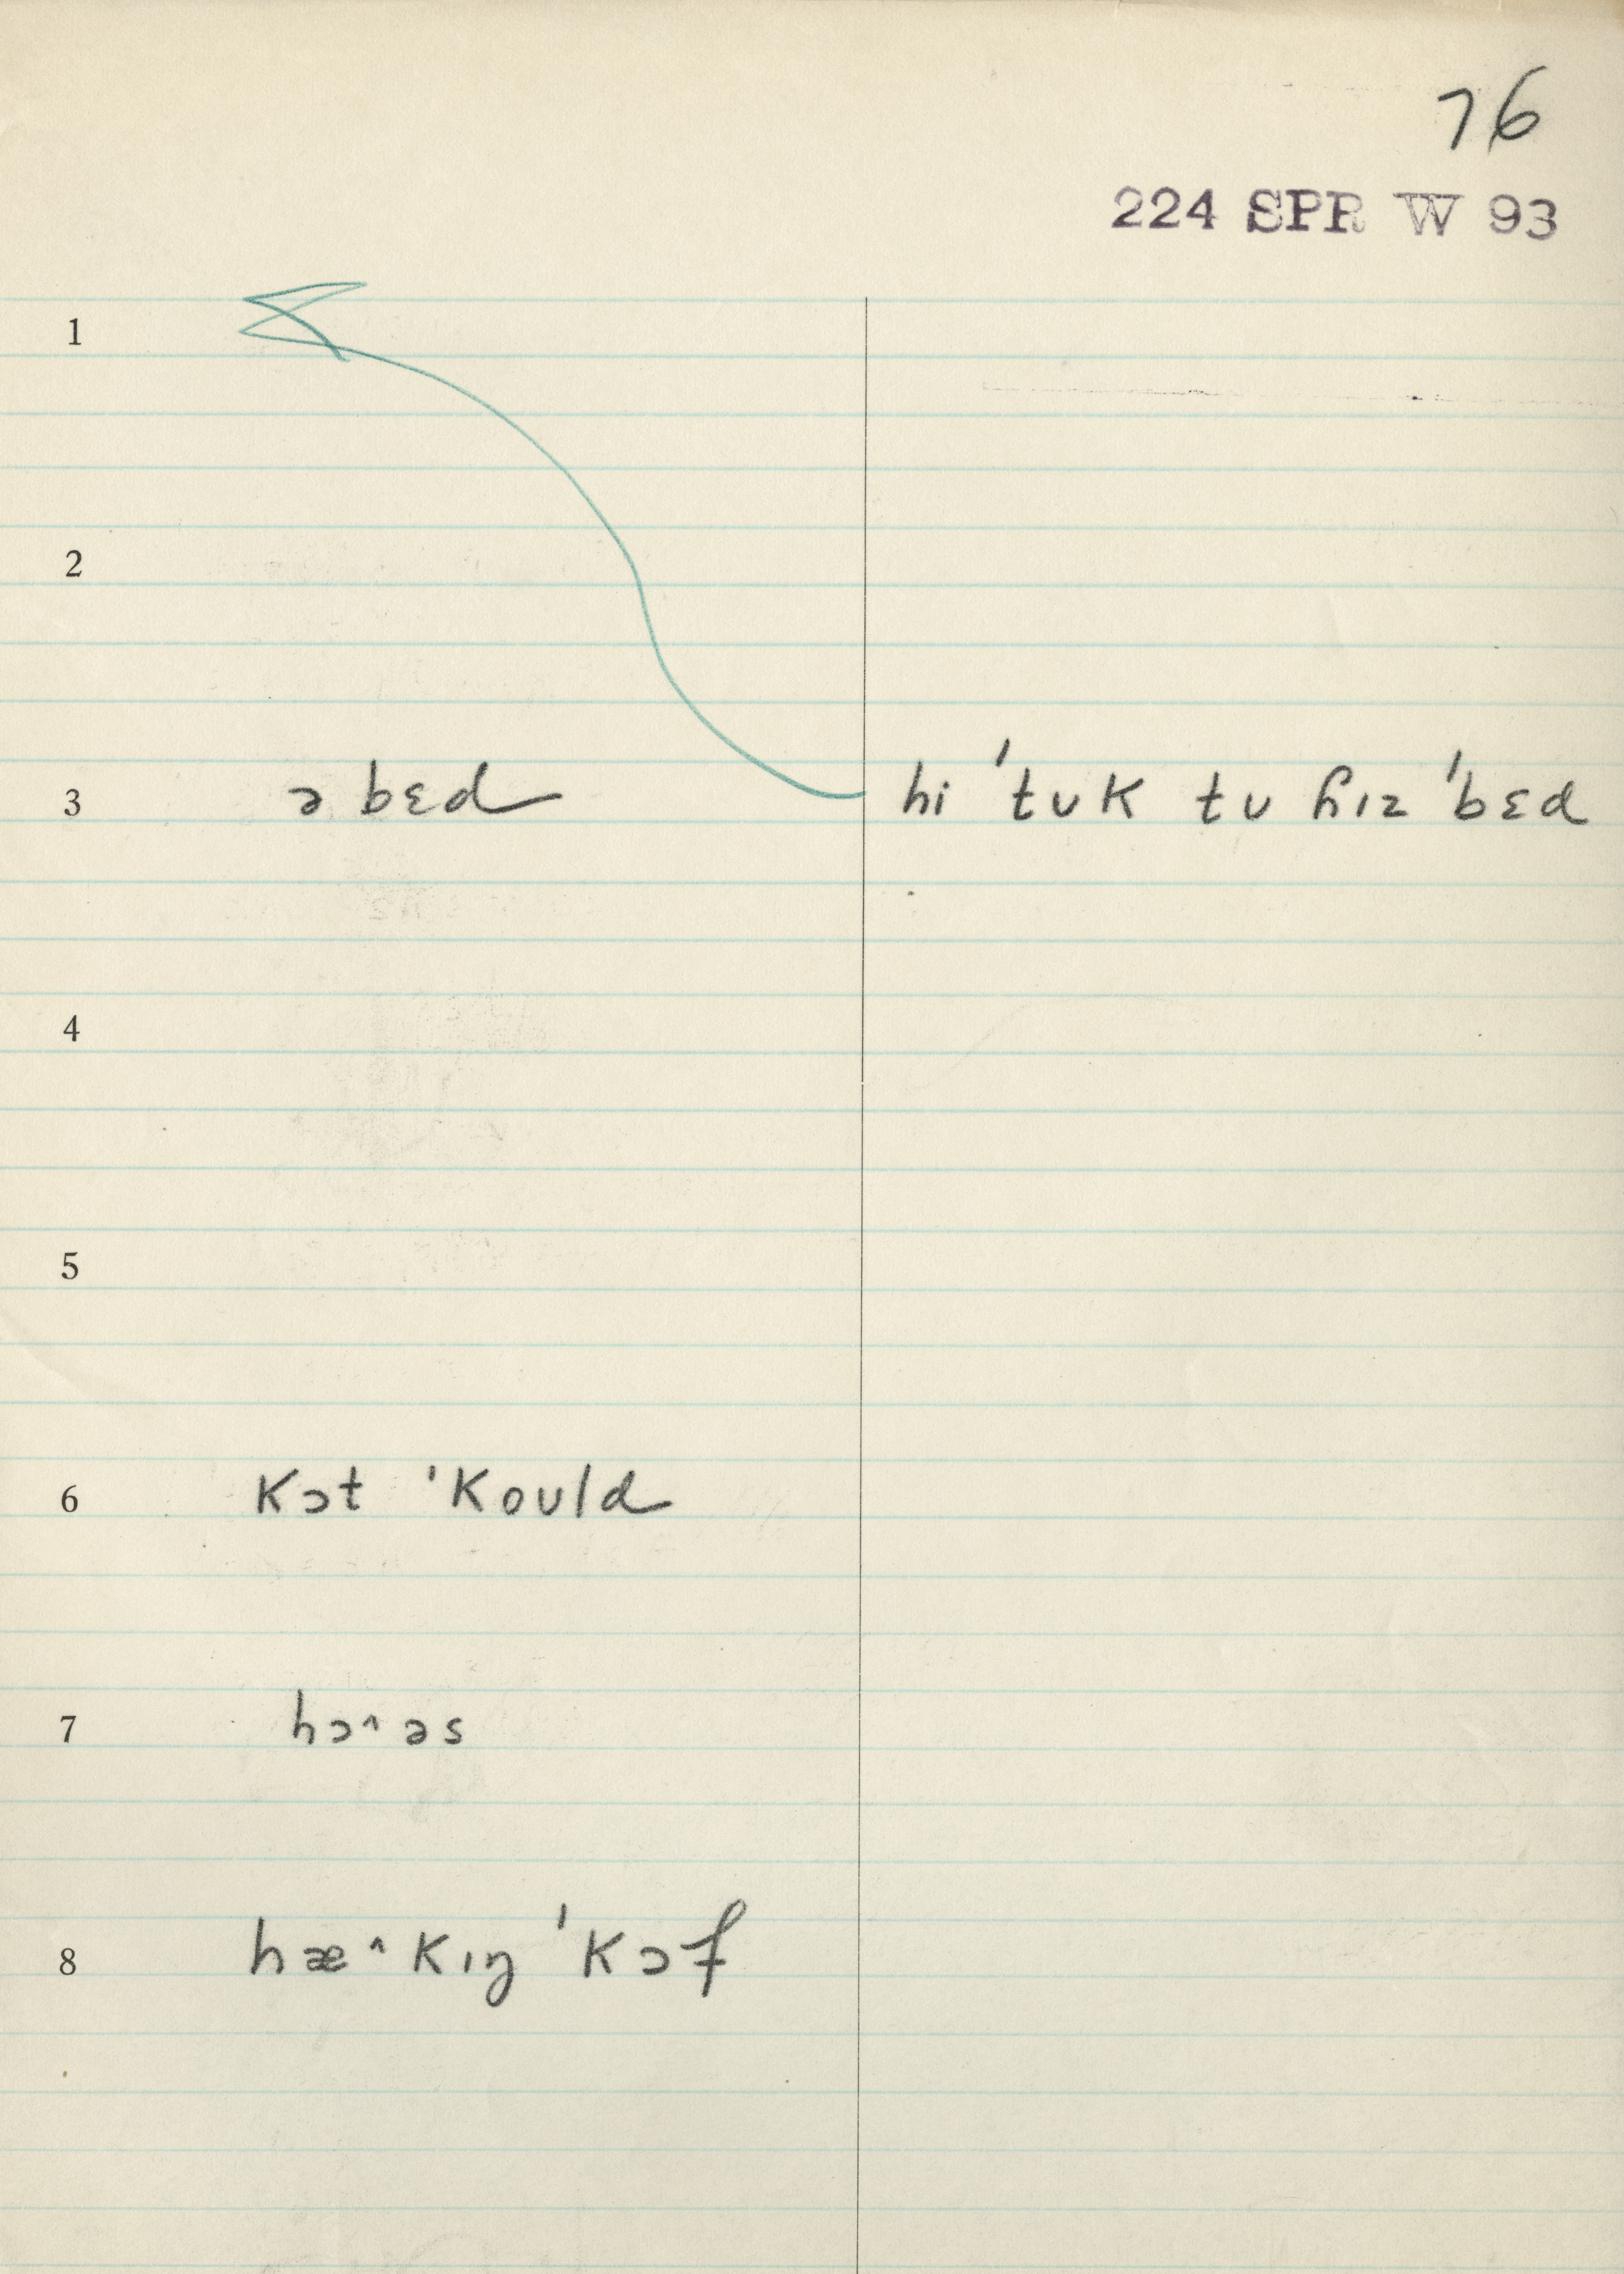 76
224 SPR W 93
1
2
3 ə bɛd hi ˈtʊk tʊ ɦɪz ˈbɛd
4
5
6 kɔt ˈkoʊld
7 hɔ˄əs
8 hæ˄kɪŋ ˈkɔf